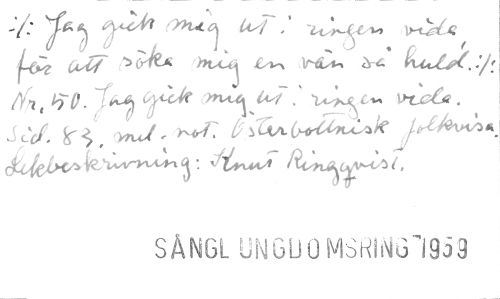 :/: Jag gick mig ut i ringen vida,
för att söka mig en vän så huld.:/:
Nr. 50. Jag gick mig ut i ringen vida.
Sid. 83, mel. not. Österbottnisk folkvisa.
Lekbeskrivning: Knut Ringqvist.
SÅNGL UNGDOMSRING 1959